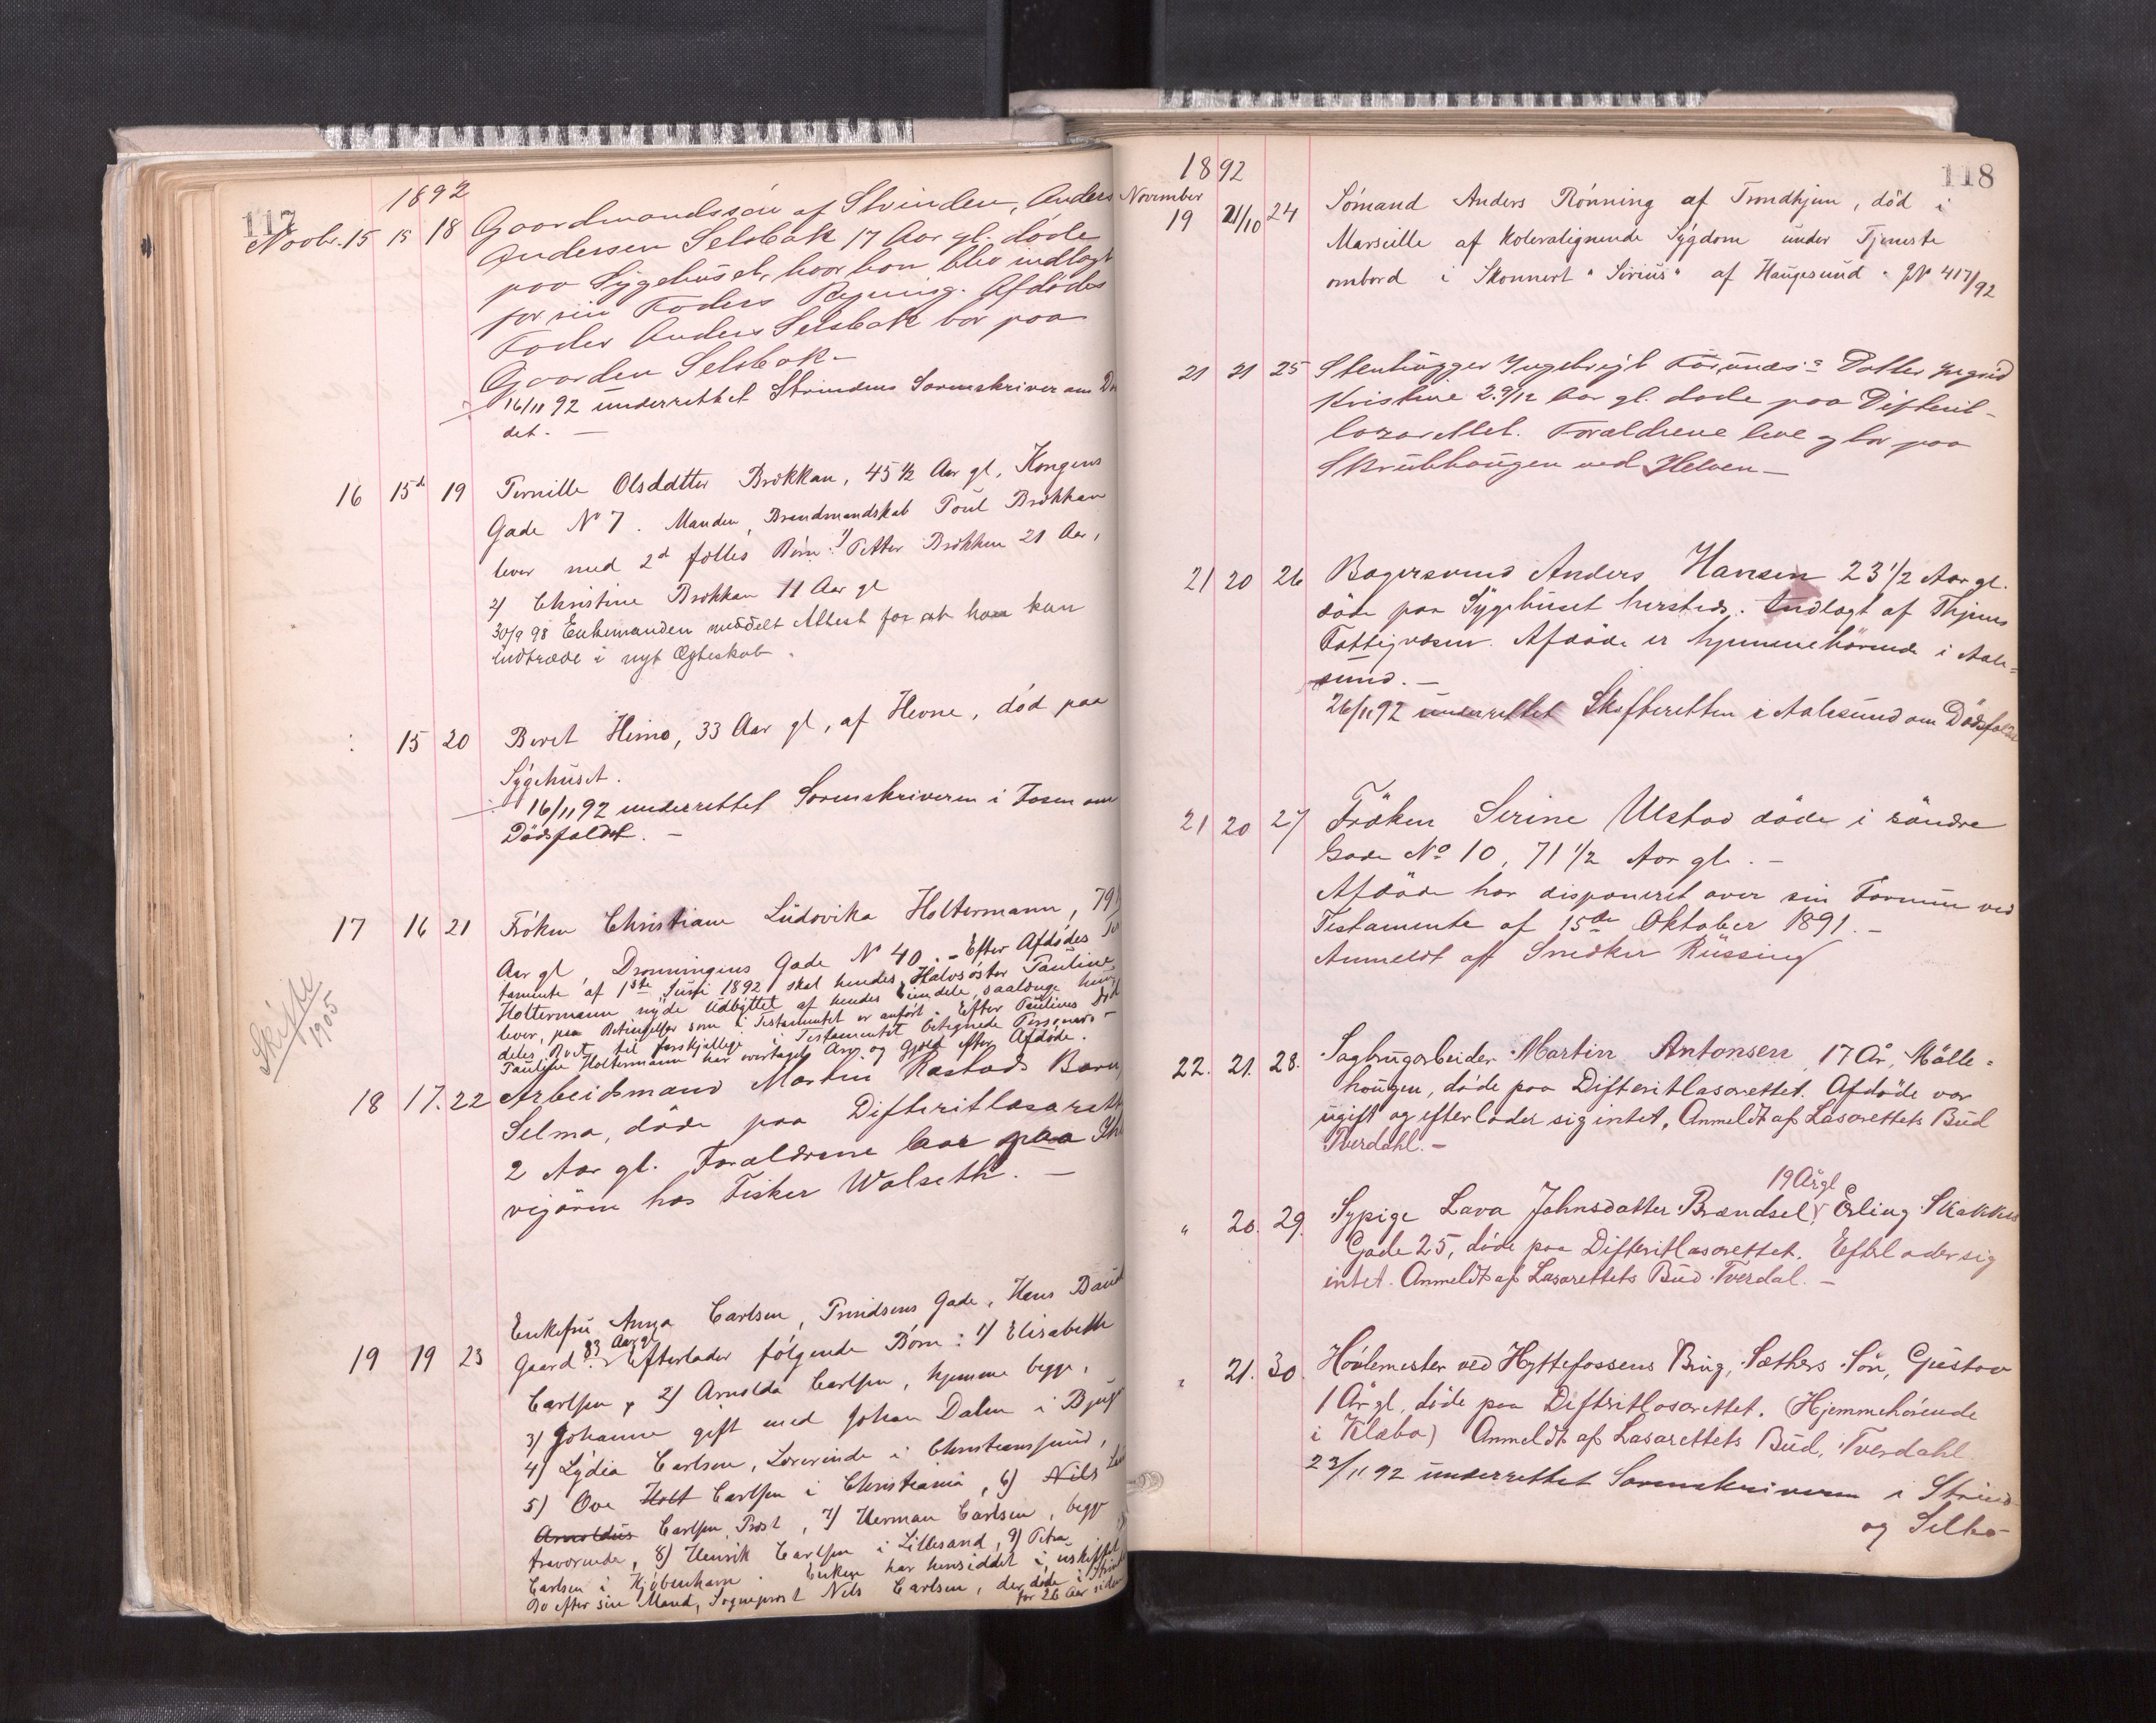 117
1892
Novbr. 15 15 18 Gaardmandssøn af Strinden, Anders
Andersen Selsbak 17 Aar gl. døde
paa Sygehuset, hvor han blev indlagt
for sin Faders Regning. Afdødes
Fader Anders Selsbak bor paa
Gaarden Selsbak.
16/11 92 underrettet Strindens Sorenskriver om
det. —
16 15d 19 Pernille Olsdatter Brækkan, 45 1/2 Aar gl, Kongens
Gade No 7. Manden, Brandmandskab Poul Brækkan
lever med 2d fælles Børn: 1) Petter Brækkan 21 Aar,
2) Christine Brækkan 11 Aar gl
30/9 98 Enkemanden meddelt Attest for at han kan
indtræde i nyt Ægteskab.
: 15 20 Beret Hemo, 33 Aar gl, af Hevne, død paa
Sygehuset.
16/11 92 underrettet Sorenskriveren i Fosen om
Dødsfaldet. —
17 16 21 Frøken Christiane Ludovika Holtermann, 79
Aar gl, Dronningens Gade No 40. - Efter Afdødes Te
tamente af 1ste Juni 1892 skal hendes Halvsøster Pauline
Holtermann nyde Udbyttet af hendes Eiendele, saalænge hun
lever, paa Betingelser som i Testamentet er anført. Efter Paulines Død
deles Boet til forskjellige i Testamentet betegnede Personer —
Pauline Holtermann har overtaget Arv og Gjæld efter Afdøde.
Skifte
1905
18 17. 22 Arbeidsmand Martin Rastads Barn,
Selma, døde paa Difteritlasarett
2 Aar gl. Forældrene bor paa
vigøren hos Fisker Walseth. —
Enkefru Anna Carlsen, Prindsens Gade, Hans
19 19 23 Gaard. 83 Aar gl Efterlader følgende Børn: 1) Elisabeth
Carlsen, 2) Arnolda Carlsen, hjemme begge,
3) Johanne gift med Johan Dalen i
4) Lydia Carlsen, Lærerinde i Christianssund,
5) Ove Holt Carlsen i Christiania, 6) Nils
Arnoldus Carlsen, Prost, 7) Herman Carlsen, begge
fraværende, 8) Henrik Carlsen i Lillesand, 9) Petra
Carlsen i Kjøbenhavn. Enken har hensiddet i uskiftet
Bo efter sin Mand, Sogneprest Nels Carlsen, der døde i
for 26 Aar siden
118
1892
November
19 21/10 24 Sømand Anders Rønning af Trondhjem, død i
Marseille af koleralignende Sygdom under Tjeneste
ombord i Skonnert "Sirius" af Haugesund. JN 417/92
21 21 25 Stenhugger Ingebrigt Datter Ingrid
Kristine 2 9/12 Aar gl. døde paa Difterit-
lazarettet. Forældrene leve og bor paa
Skrubhaugen ved Elven —
21 20 26 Bagersvend Anders Hansen 23 1/2 Aar gl.
døde paa Sygehuset hersteds. Indlagt af Thjems
Fattigvæsen. Afdøde er hjemmehørende i Aale-
sund. —
26/11 92 underrettet Skifteretten i Aalesund om Dødsfaldet
21 20 27 Frøken Serine Ulstad døde i søndre
Gade No 10, 71 1/2 Aar gl. —
Afdøde har disponeret over sin Formue ved
Testamente af 15de Oktober 1891. —
Anmeldt af Snedker Rüssing
22. 21. 28. Sagbrugarbeider Martin Antonsen, 17 År, Mølle-
haugen, døde paa Difteritlasarettet. Afdøde var
ugift og efterlader sig intet, Anmeldt af Lasarettets Bud
Tverdahl. —
19 År gl
" 20. 29. Sypige Lava Johnsdatter Brændsel, Erling Skakkes
Gade 25, døde paa Difteritlasarettet. Efterlader sig
intet. Anmeldt af Lasarettets Bud Tverdal. —
" 21. 30. Høvlemester ved Hyttefossens Brug, Sæthers Søn, Gustav
1 År gl, døde paa Difteritlasarettet. (Hjemmehørende
i Klæbo) Anmeldt af Lasarettets Bud, Tverdahl.
23/11 92 underrettet Sorenskriveren i Strind-
og Selbo-